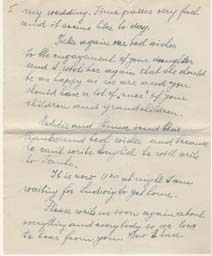 my wedding. Time passes very fast
and it seems like to day.
Take again our best wishes
to the engagement of your daughter
and I wish her again that she should
be as happy as we are and you
should have a lot of "nues" of your
children and grandchildren.
and send their
thanks and best wishes and because
he can't write English he will write
to
It is now 11 at night I am
waiting for Ludwig to get home.
Please write us soon again about
everything and everybody so we love
to hear from you. How is